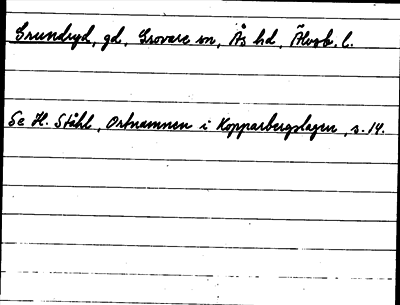 Grundryd, gd, Grovare sn, Ås hd, Älvsb. l.
Se H. Ståhl, Ortnamnen i Kopparbergslagen, s. 14.